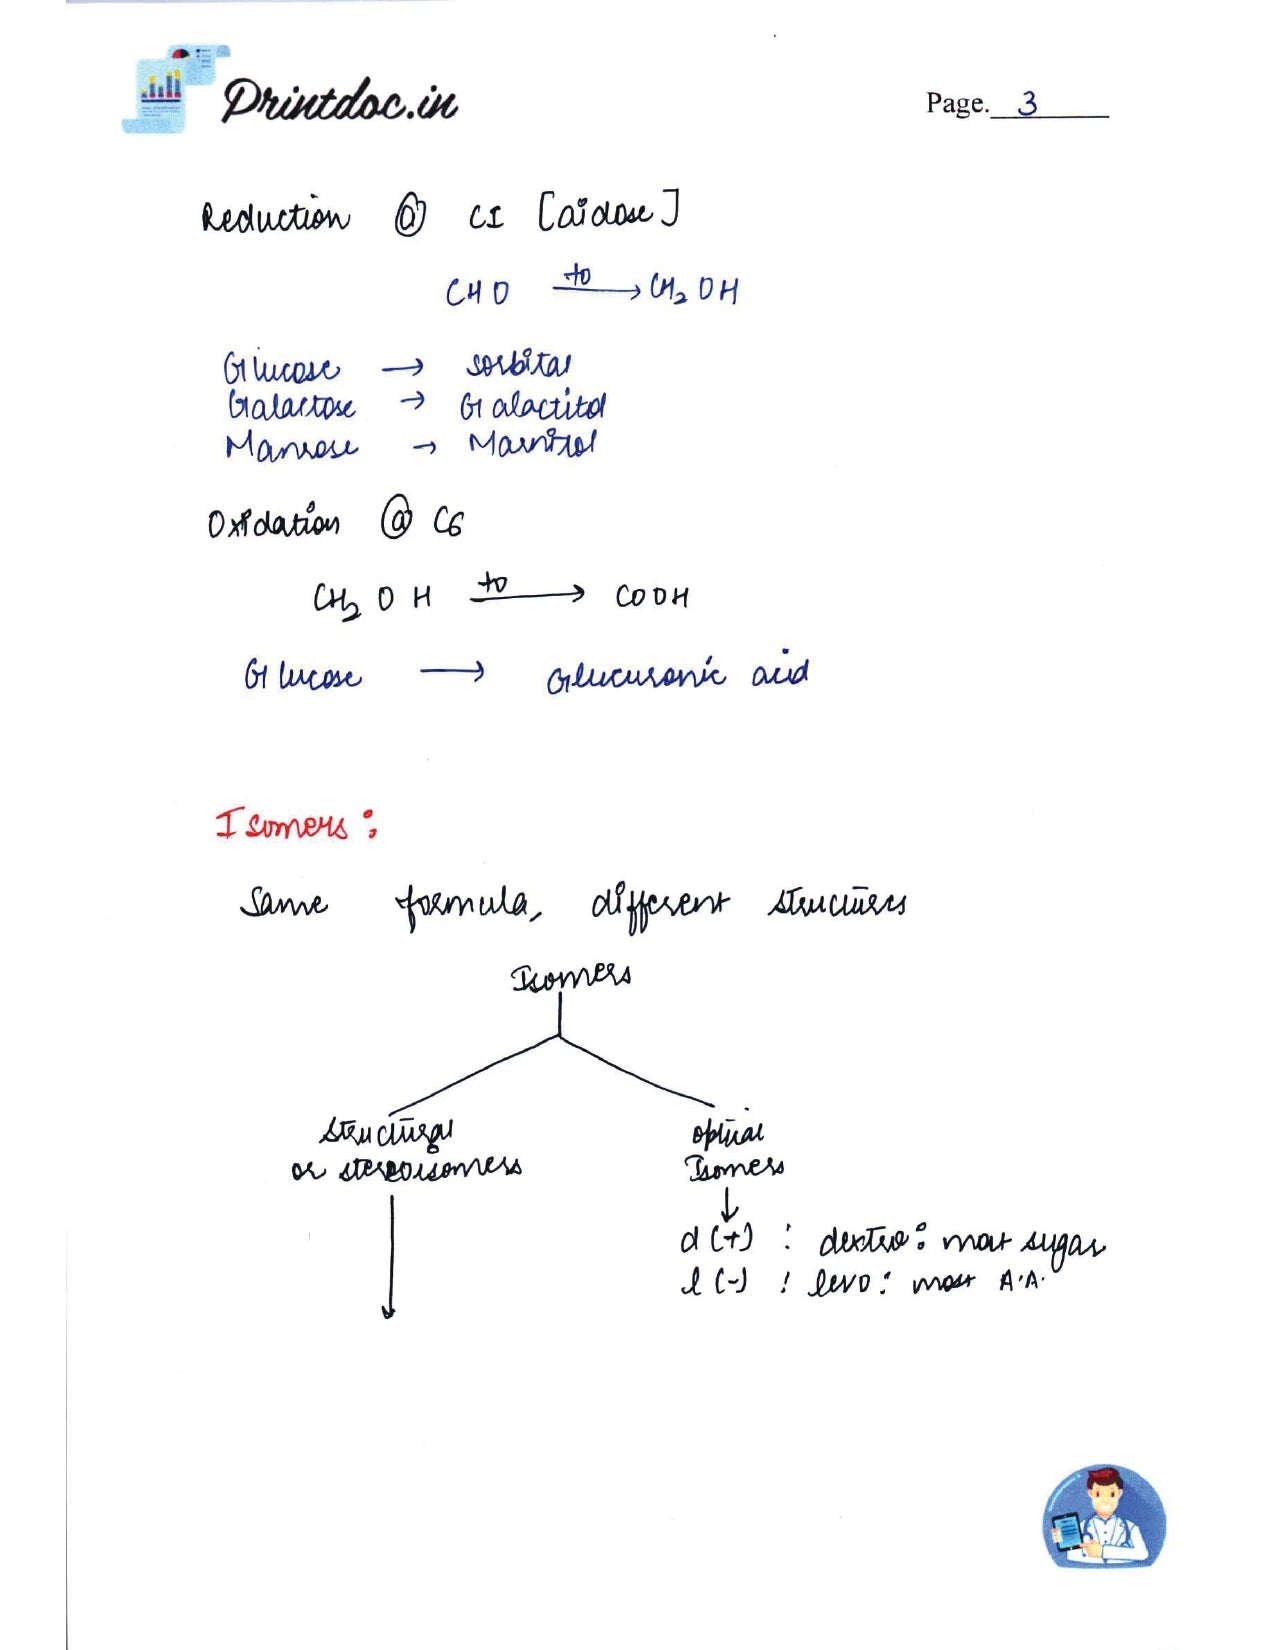 Printdoc.in
Page. 3
Reduction @ C1 [aldose]
CHO to → CH2 OH
Glucose → sorbitol
Galactose → Galactitol
Mannose → Mannitol
Oxidation @ C6
CH2 OH to → COOH
Glucose → Glucuronic acid
Isomers :
Same formula, different structures
Isomers
structural
or stereoisomers
optical
Isomers
↓
d (+) : dextro : most sugar
l (-) : levo : most A.A.